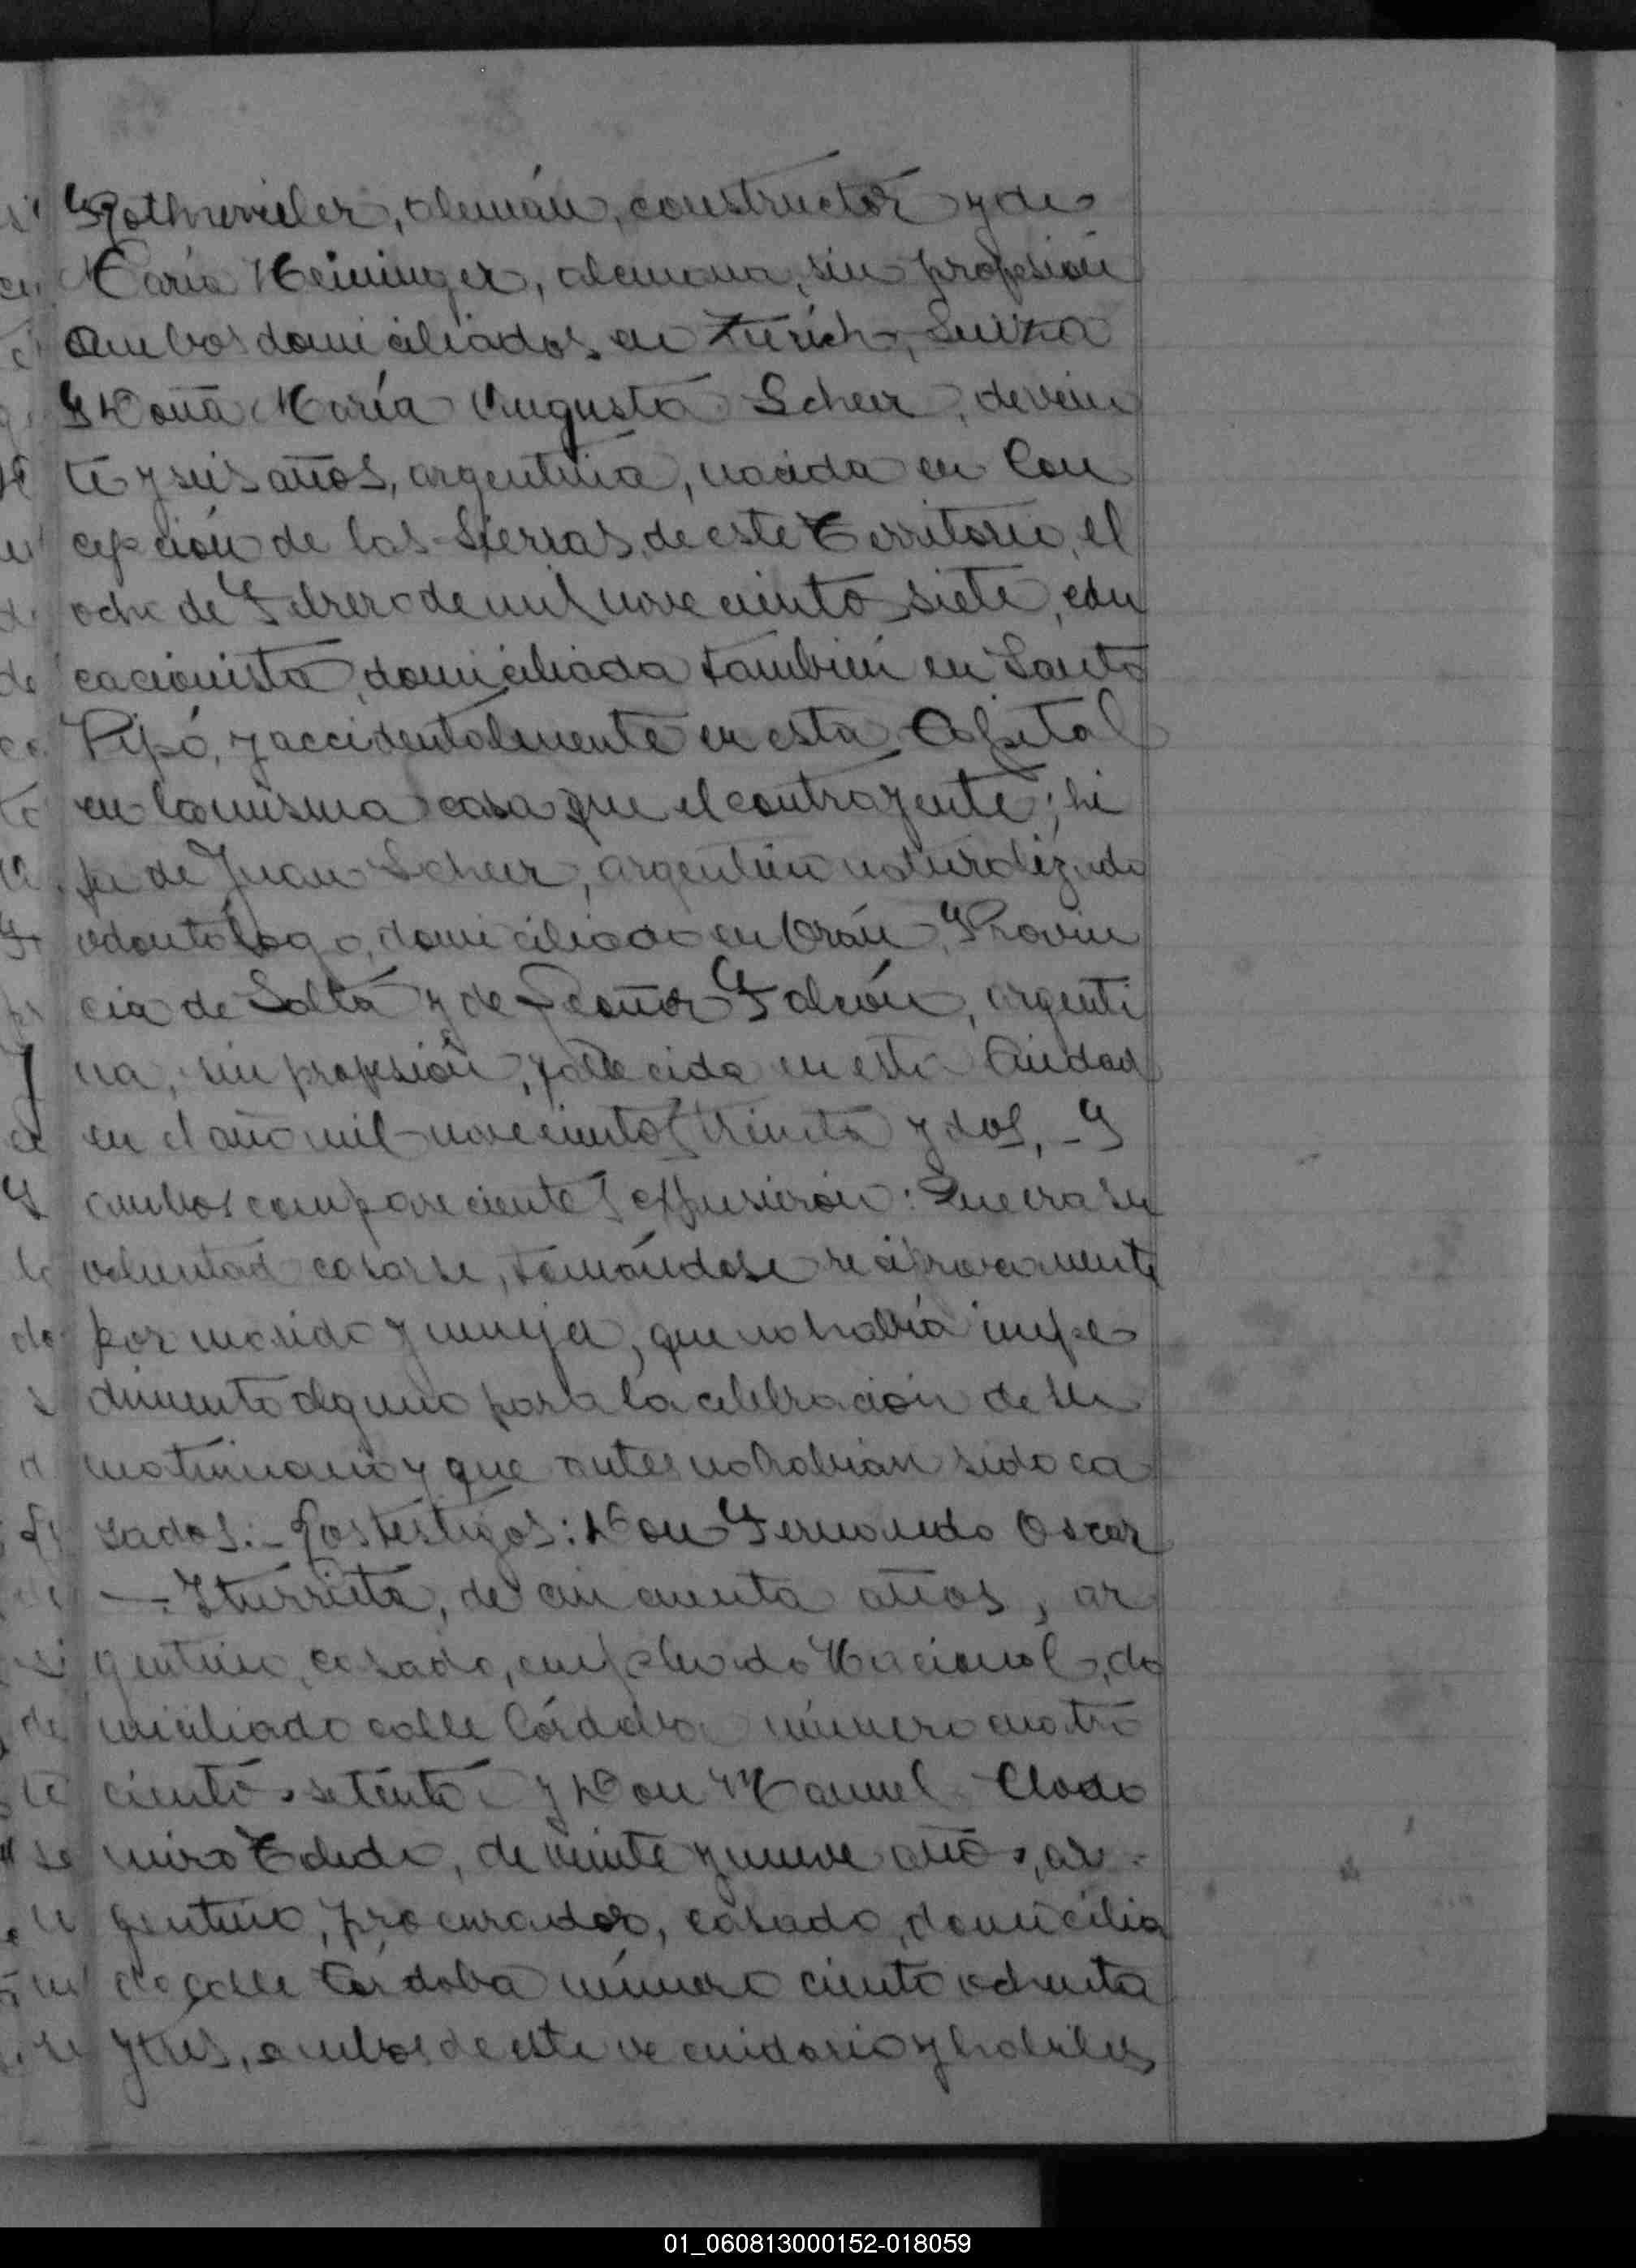 Rothweiler, alemán, constructor y de
María Heininger, alemana, sin profesión
ambos domiciliados en Zürich, Suiza
y Doña María Augusta Scheur, de vein
te y seis años, argentina, nacida en Con
cepción de las Sierras de este Territorio, el
ocho de Febrero de mil novecientos siete, edu
cacionista, domiciliada también en Santo
Pipó, y accidentalmente en esta Capital
en la misma casa que el contrayente; hi
ja de Juan Scheur, argentino naturalizado
odontólogo, domiciliado en Orán, Provin
cia de Salta y de Leonor Falcón, argenti
na, sin profesión, fallecida en esta Ciudad
en el año mil novecientos treinta y dos, - Y
ambos comparecientes expusieron: Que era su
voluntad casarse, tomándose recíprocamente
por marido y mujer, que no había impe
dimento alguno para la celebración de su
matrimonio y que antes no habían sido ca
sados.- Los testigos: Don Fernando Oscar
-. Iturrieta, de cincuenta años, ar
gentino, casado, empleado Nacional, do
miciliado calle Córdoba número cuatro
cientos setenta y Don Manuel Clodo
miro Toledo, de veinte y nueve años, ar-
gentino, procurador, casado, domicilia
do calle Córdoba número ciento ochenta
y tres, ambos de este vecindario y hábiles
01_060813000152-018059